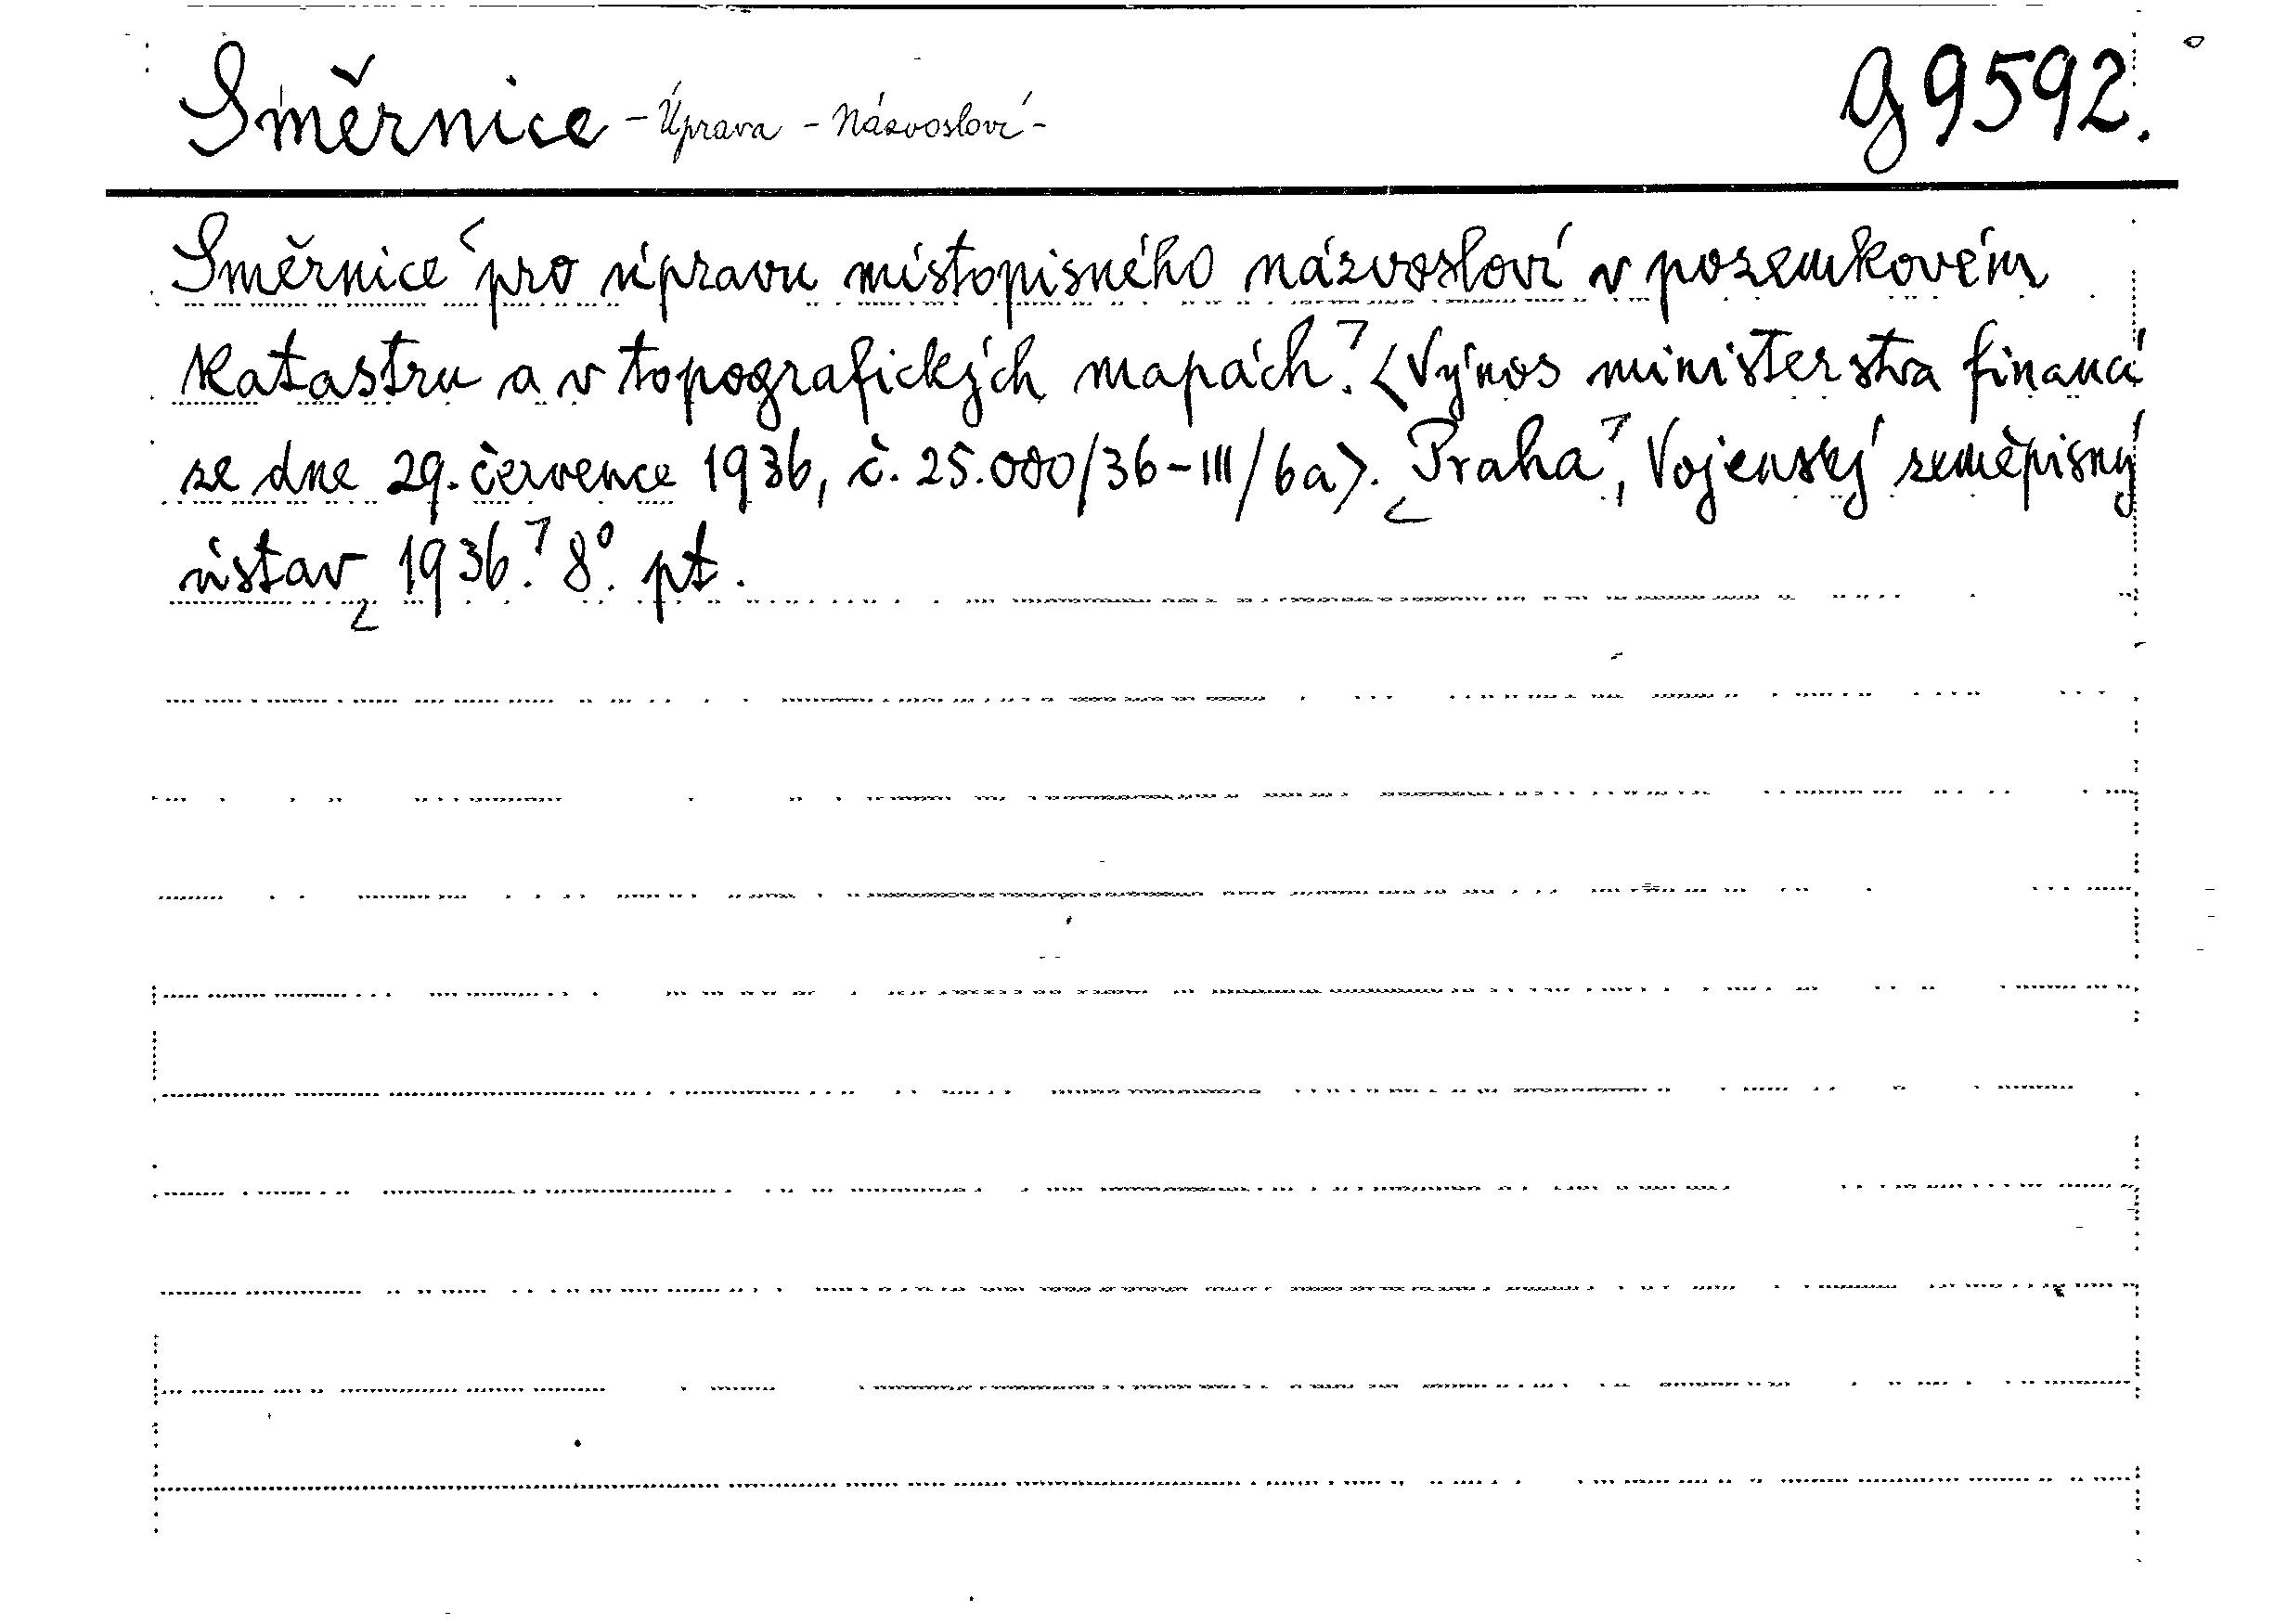 Směrnice - Úprava - Názvosloví - g 9592.
Směrnice pro úpravu místopisného názvosloví v pozemkovém
katastru a v topografických mapách. <Výnos ministerstva financí
ze dne 29. července 1936, č. 25.000/36-III/6a>. Praha, Vojenský zeměpisný
ústav 1936. 8°. pt.